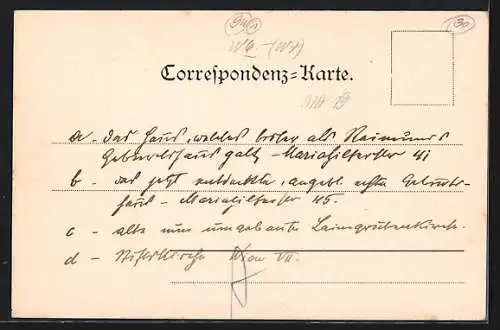 Correspondenz-Karte.
a - das Haus, welches bisher als Raimunds
Geburtshaus galt - Mariahilferstr 41
b - das jetzt entdeckte, angebl. echte Geburts-
haus - Mariahilferstr 45.
c - alte nun umgebaute Laimgrubenkirche
d - Stiftskirche Wien VII.